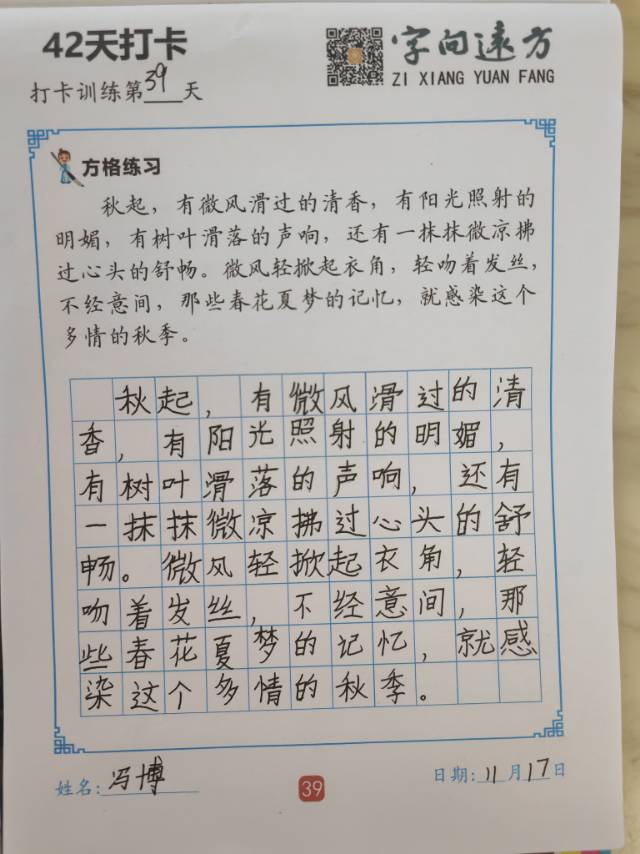 42天打卡
字向远方
ZI XIANG YUAN FANG
打卡训练第39天
方格练习
秋起，有微风滑过的清香，有阳光照射的
明媚，有树叶滑落的声响，还有一抹抹微凉拂
过心头的舒畅。微风轻掀起衣角，轻吻着发丝，
不经意间，那些春花夏梦的记忆，就感染这个
多情的秋季。
秋起，有微风滑过的清
香，有阳光照射的明媚，
有树叶滑落的声响，还有
一抹抹微凉拂过心头的舒
畅。微风轻掀起衣角，轻
吻着发丝，不经意间，那
些春花夏梦的记忆，就感
染这个多情的秋季。
姓名:冯博
39
日期:11月17日